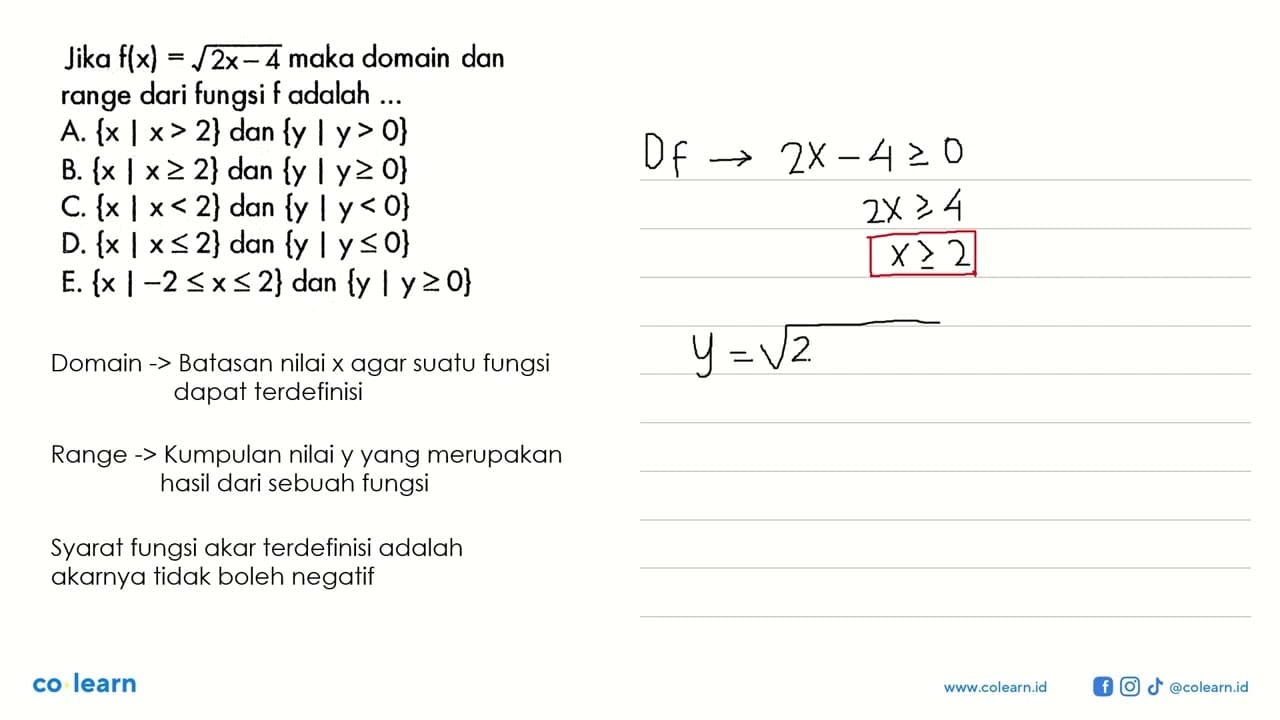 Jika f(x) = √2x – 4 maka domain dan
range dari fungsi f adalah ...
A. {x | x > 2} dan {y | y > 0}
B. {x | x ≥ 2} dan {y | y ≥ 0}
C. {x | x < 2} dan {y | y < 0}
D. {x | x ≤ 2} dan {y | y ≤ 0}
E. {x | –2 ≤ x ≤ 2} dan {y | y ≥ 0}
Domain -> Batasan nilai x agar suatu fungsi
dapat terdefinisi
Range -> Kumpulan nilai y yang merupakan
hasil dari sebuah fungsi
Syarat fungsi akar terdefinisi adalah
akarnya tidak boleh negatif
Df → 2x – 4 ≥ 0
2x ≥ 4
x ≥ 2
y = √2
co learn
www.colearn.id
@colearn.id